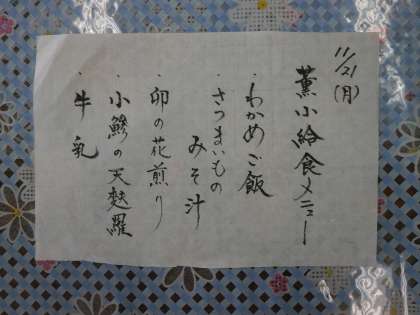 11/21(月)
薫小給食メニュー
・わかめご飯
・さつまいもの
みそ汁
・卯の花煎り
・小鯵の天麩羅
・牛乳